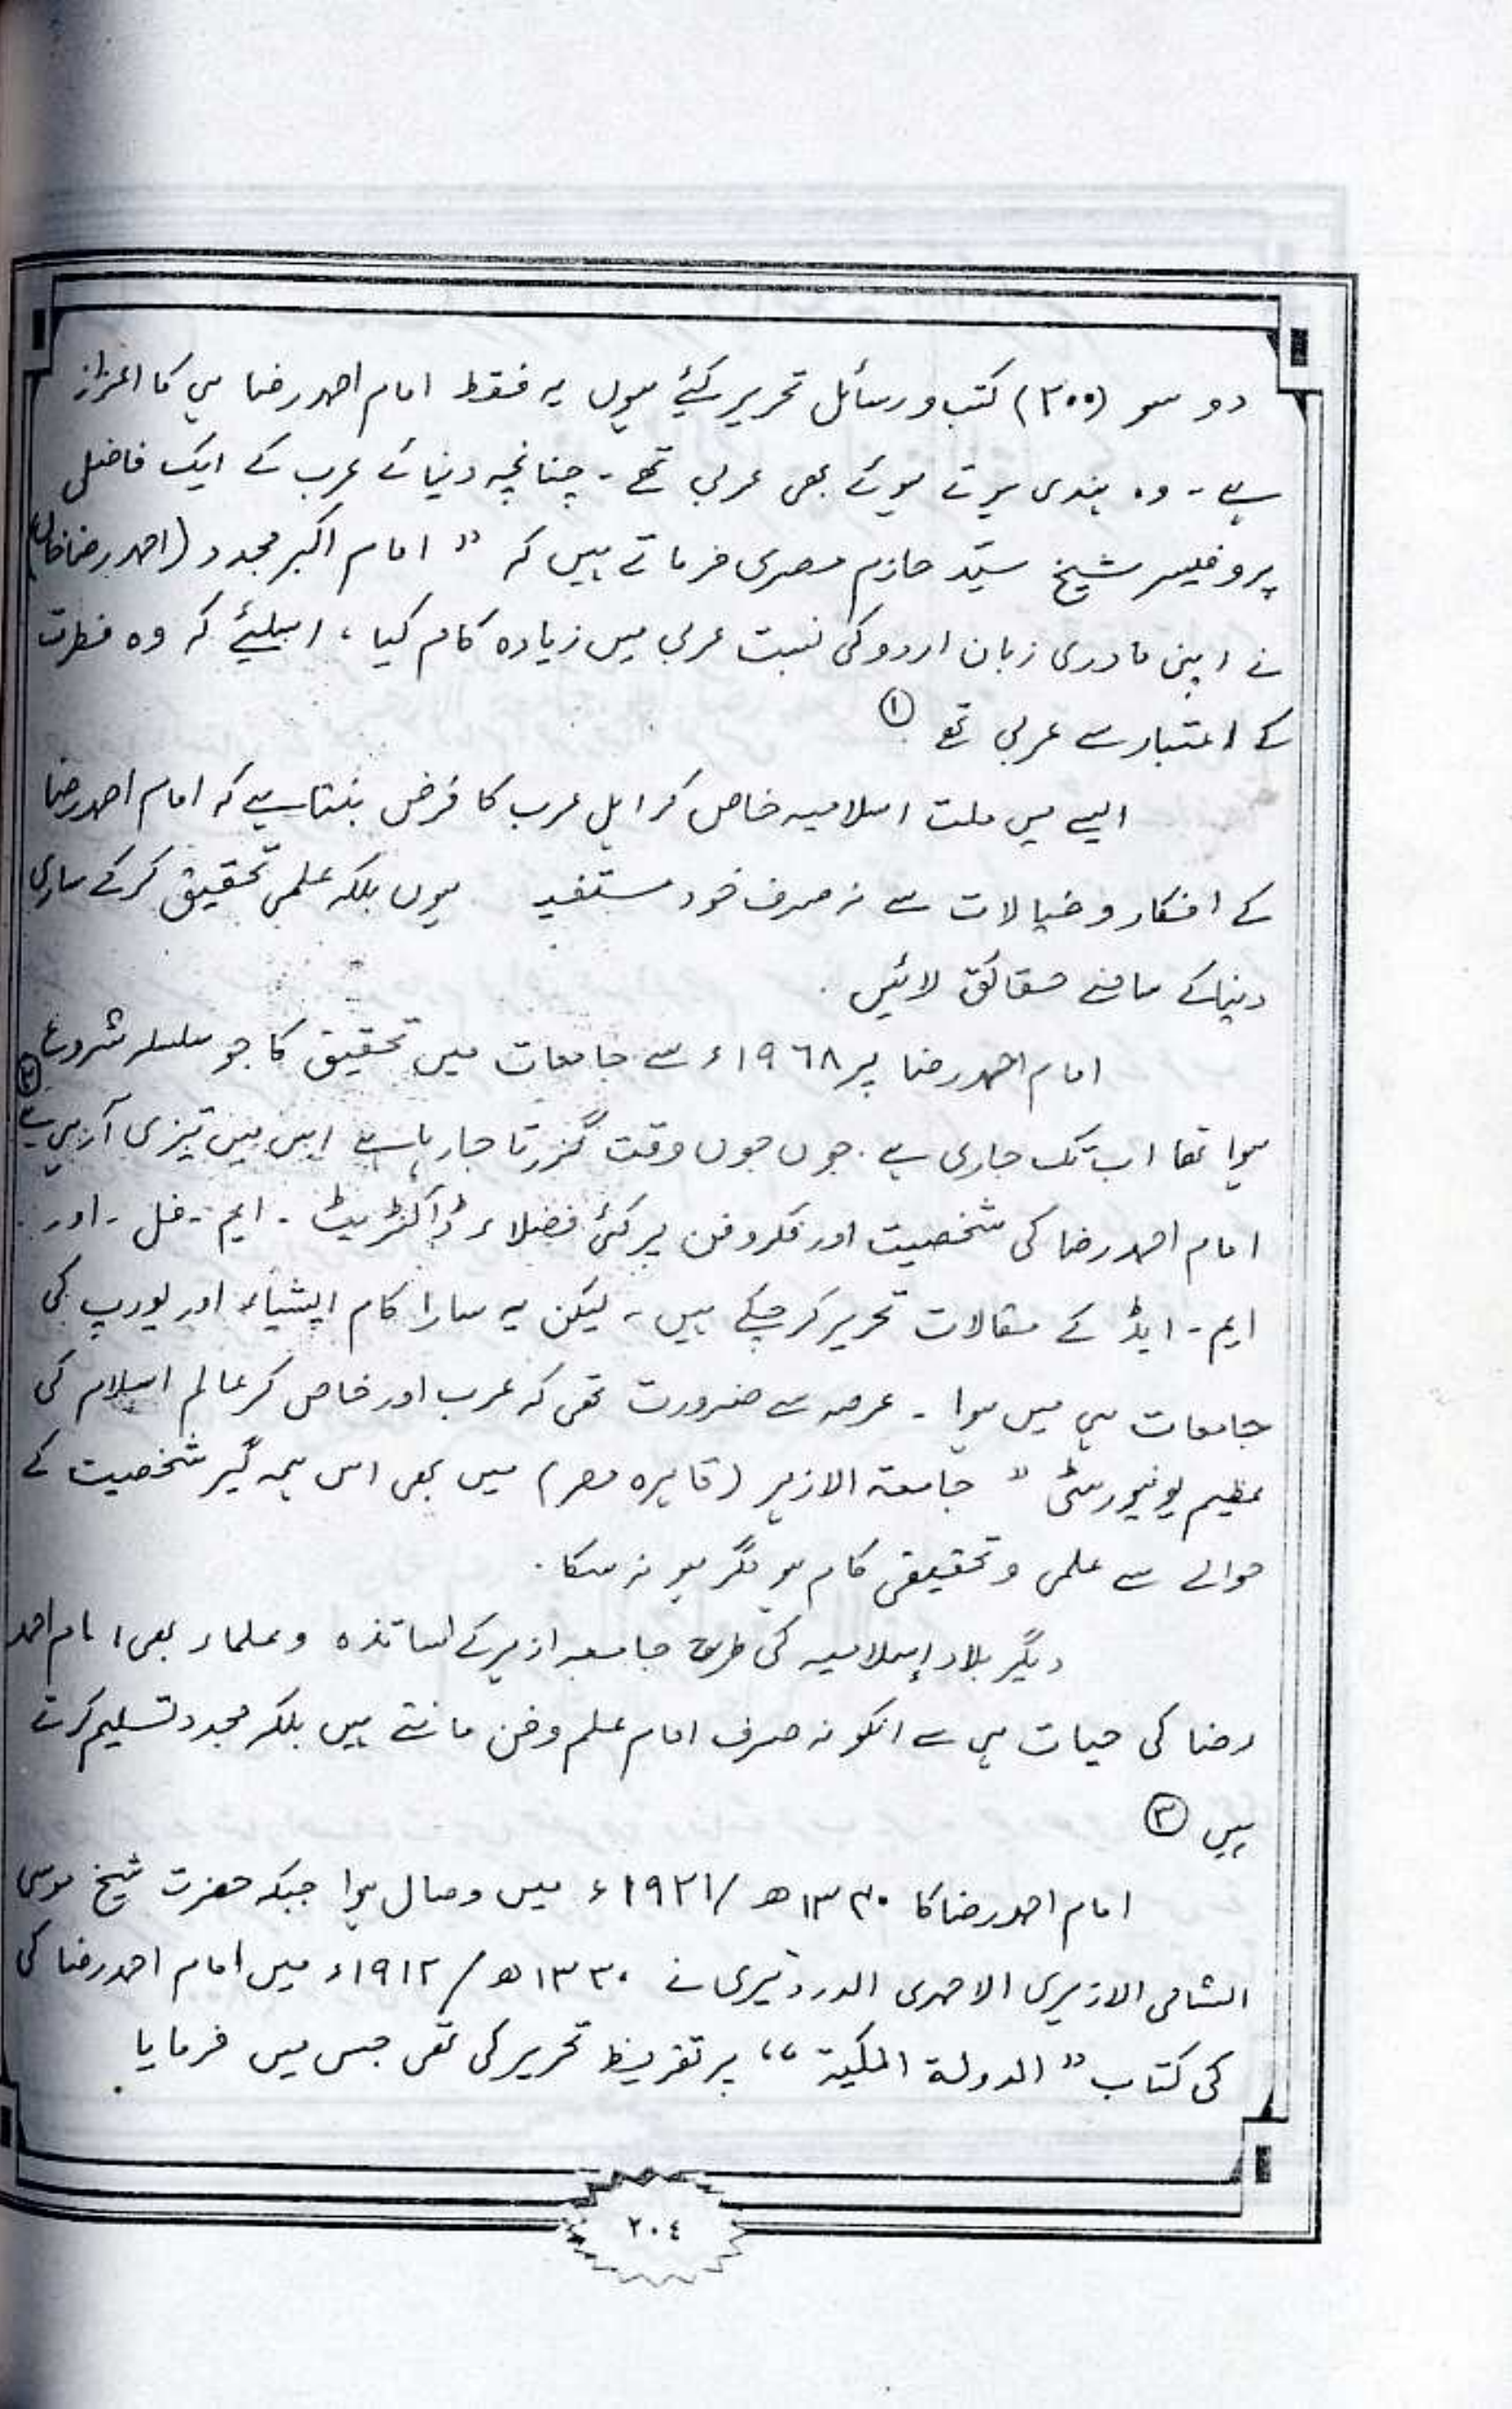 دو سو (۲۰۰) کتب و رسائل تحریر کئیے ہوں یہ فقط امام احمد رضا ہی کا اعزاز
ہے۔ وہ ہندی ہوتے ہوئے بھی عربی تھے۔ چنانچہ دنیائے عرب کے ایک فاضل
پروفیسر شیخ سیّد حازم مصری فرماتے ہیں کہ " امام اکبر مجدد (احمد رضا خاں)
نے اپنی مادری زبان اردو کی نسبت عربی میں زیادہ کام کیا، اسلیئے کہ وہ فطرت
کے اعتبار سے عربی تھے ①
ایسے میں ملت اسلامیہ خاص کر اہل عرب کا فرض بنتا ہے کہ امام احمد رضا
کے افکار و خیالات سے نہ صرف خود مستفید ہوں بلکہ علمی تحقیق کرکے ساری
دنیا کے سامنے حقائق لائیں.
امام احمد رضا پر ۱۹٦۸ء سے جامعات میں تحقیق کا جو سلسلہ شروع
ہوا تھا اب تک جاری ہے. جوں جوں وقت گزرتا جارہا ہے اس میں تیزی آرہی ہے ②
امام احمد رضا کی شخصیت اور فکر و فن پر کئی فضلاء ڈاکٹریٹ - ایم - فل - اور
ایم - ایڈ کے مقالات تحریر کر چکے ہیں، لیکن یہ سارا کام ایشیاء اور یورپ کی
جامعات ہی میں ہوا - عرصہ سے ضرورت تھی کہ عرب اور خاص کر عالم اسلام کی
عظیم یونیورسٹی " جامعۃ الازہر (قاہرہ مصر) میں بھی اس ہمہ گیر شخصیت کے
حوالے سے علمی و تحقیقی کام ہو مگر ہو نہ سکا.
دیگر بلاد إسلامیہ کی طرح جامعہ ازہر کے اساتذہ و علماء بھی امام احمد
رضا کی حیات ہی سے انکو نہ صرف امام علم و فن مانتے ہیں بلکہ مجدد تسلیم کرتے
ہیں ③
امام احمد رضا کا ۱۳۴۰ھ/۱۹۲۱ء میں وصال ہوا جبکہ حضرت شیخ موسی
الشامی الازہری الاحمدی الدردیری نے ۱۳۳۰ھ/۱۹۱۲ء میں امام احمد رضا کی
کی کتاب "الدولة المکیة" پر تقریظ تحریر کی تھی جس میں فرمایا
۲۰٤